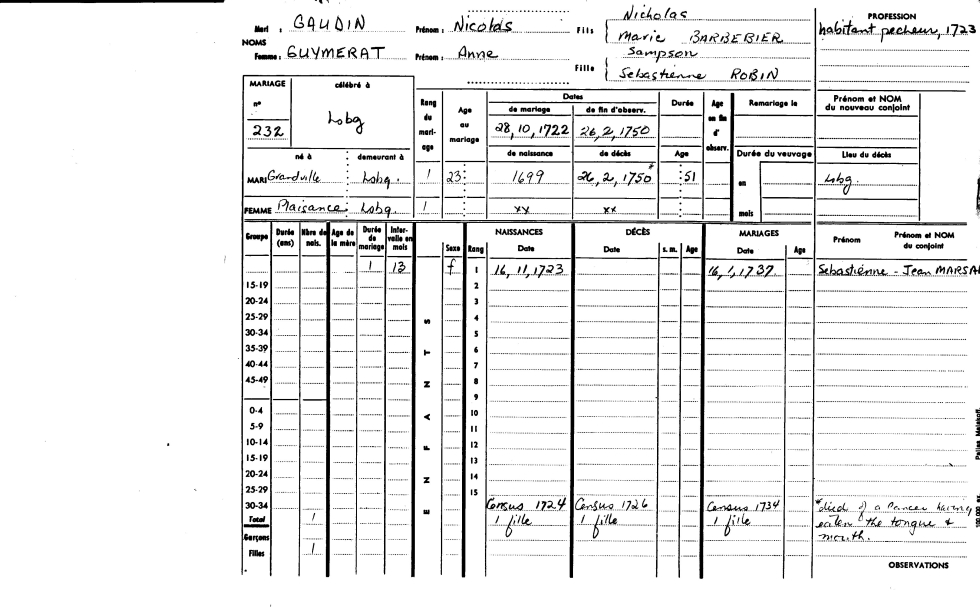 Mari : GAUDIN Prénom : Nicolas Fils Nicholas
Marie BARBEBIER
PROFESSION
habitant pecheur, 1723
NOMS
Femme : GUYMERAT Prénom : Anne Fille Sampson
Sebastienne ROBIN
MARIAGE célébré à
n° 232 Lobg
Rang du mariage
Age au mariage
Dates
de mariage de fin d'observ.
28, 10, 1722 26, 2, 1750
Durée
Age en fin d'observ.
Remariage le
Prénom et NOM du nouveau conjoint
né à demeurant à
de naissance de décès Age
Durée du veuvage
en mois
Lieu du décès
MARI Grandville Lobg. 1 23 1699 26, 2, 1750* 51 Lobg.
FEMME Plaisance Lobg. 1 xx xx
Groupe Durée (ans) Nbre de nais. Age de la mère Durée de mariage Intervalle en mois
ENFANTS
Sexe Rang
NAISSANCES Date
DÉCÈS Date s. m. Age
MARIAGES Date Age
Prénom Prénom et NOM du conjoint
1 13 f 1 16, 11, 1723 16, 1, 1737 Sebastienne - Jean MARSA
15-19 2
20-24 3
25-29 4
30-34 5
35-39 6
40-44 7
45-49 8
9
0-4 10
5-9 11
10-14 12
15-19 13
20-24 14
25-29 15
30-34 Census 1724 Census 1726 Census 1734 *died of a cancer having
Total 1 1 fille 1 fille 1 fille eaten the tongue &
Garçons mouth.
Filles 1
OBSERVATIONS